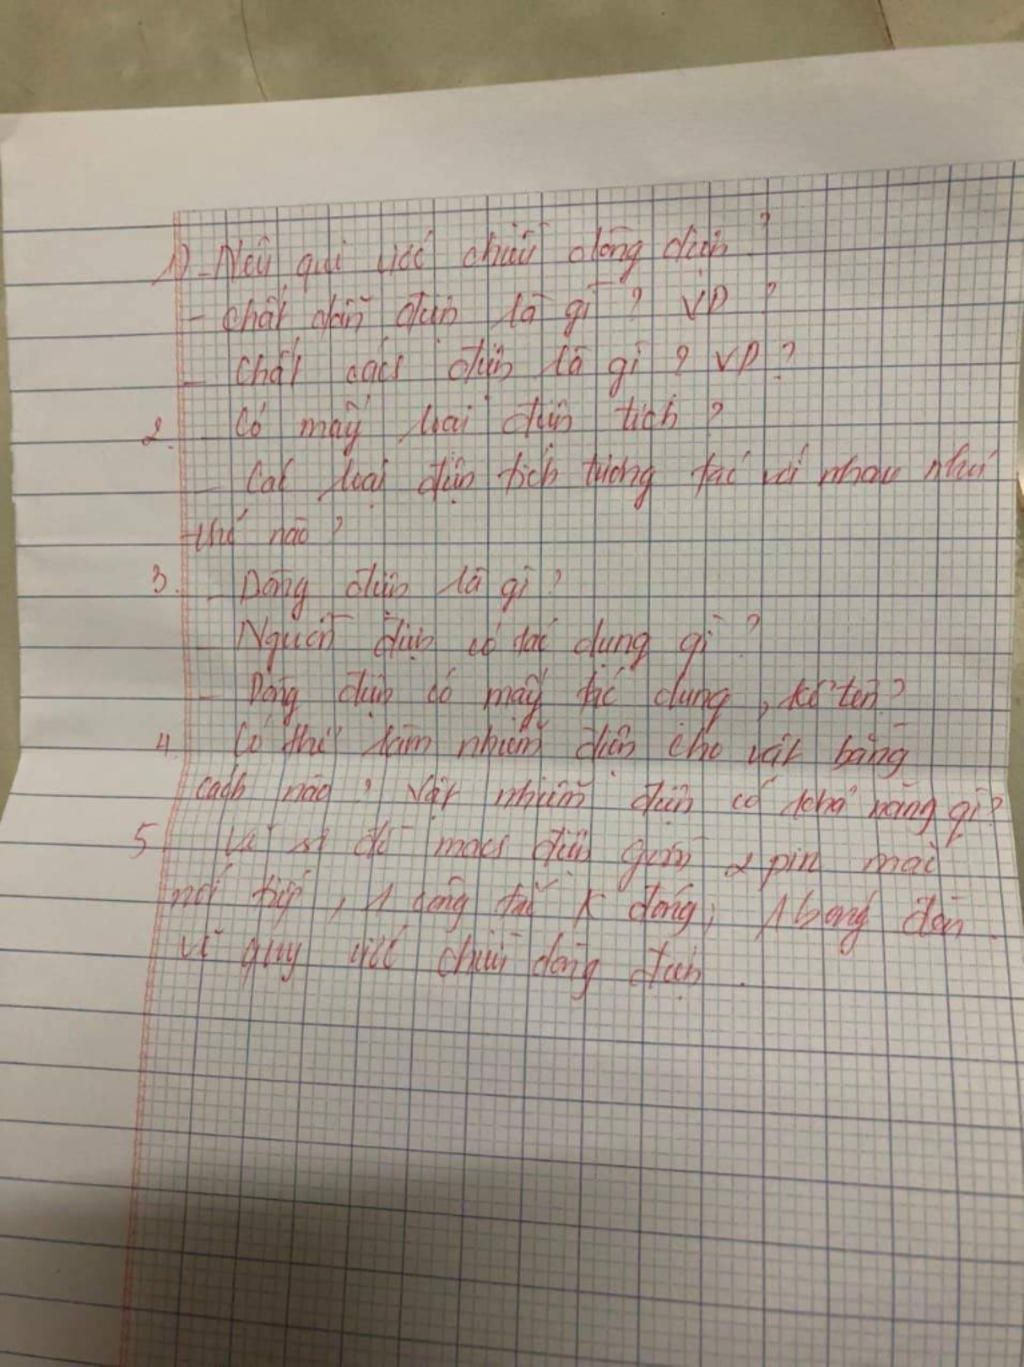 1) - Nêu qui ước chiều dòng điện ?
- Chất dẫn điện là gì ? VD ?
- Chất cách điện là gì ? VD ?
2. - Có mấy loại điện tích ?
- Các loại điện tích tương tác với nhau như
thế nào ?
3. - Dòng điện là gì ?
- Nguồn điện có tác dụng gì ?
- Dòng điện có mấy tác dụng, kể tên ?
4. Có thể làm nhiễm điện cho vật bằng
cách nào ? Vật nhiễm điện có khả năng gì ?
5 Vẽ sơ đồ mạch điện gồm 2 pin mắc
nối tiếp, 1 công tắc K đóng, 1 bóng đèn.
vẽ quy ước chiều dòng điện.